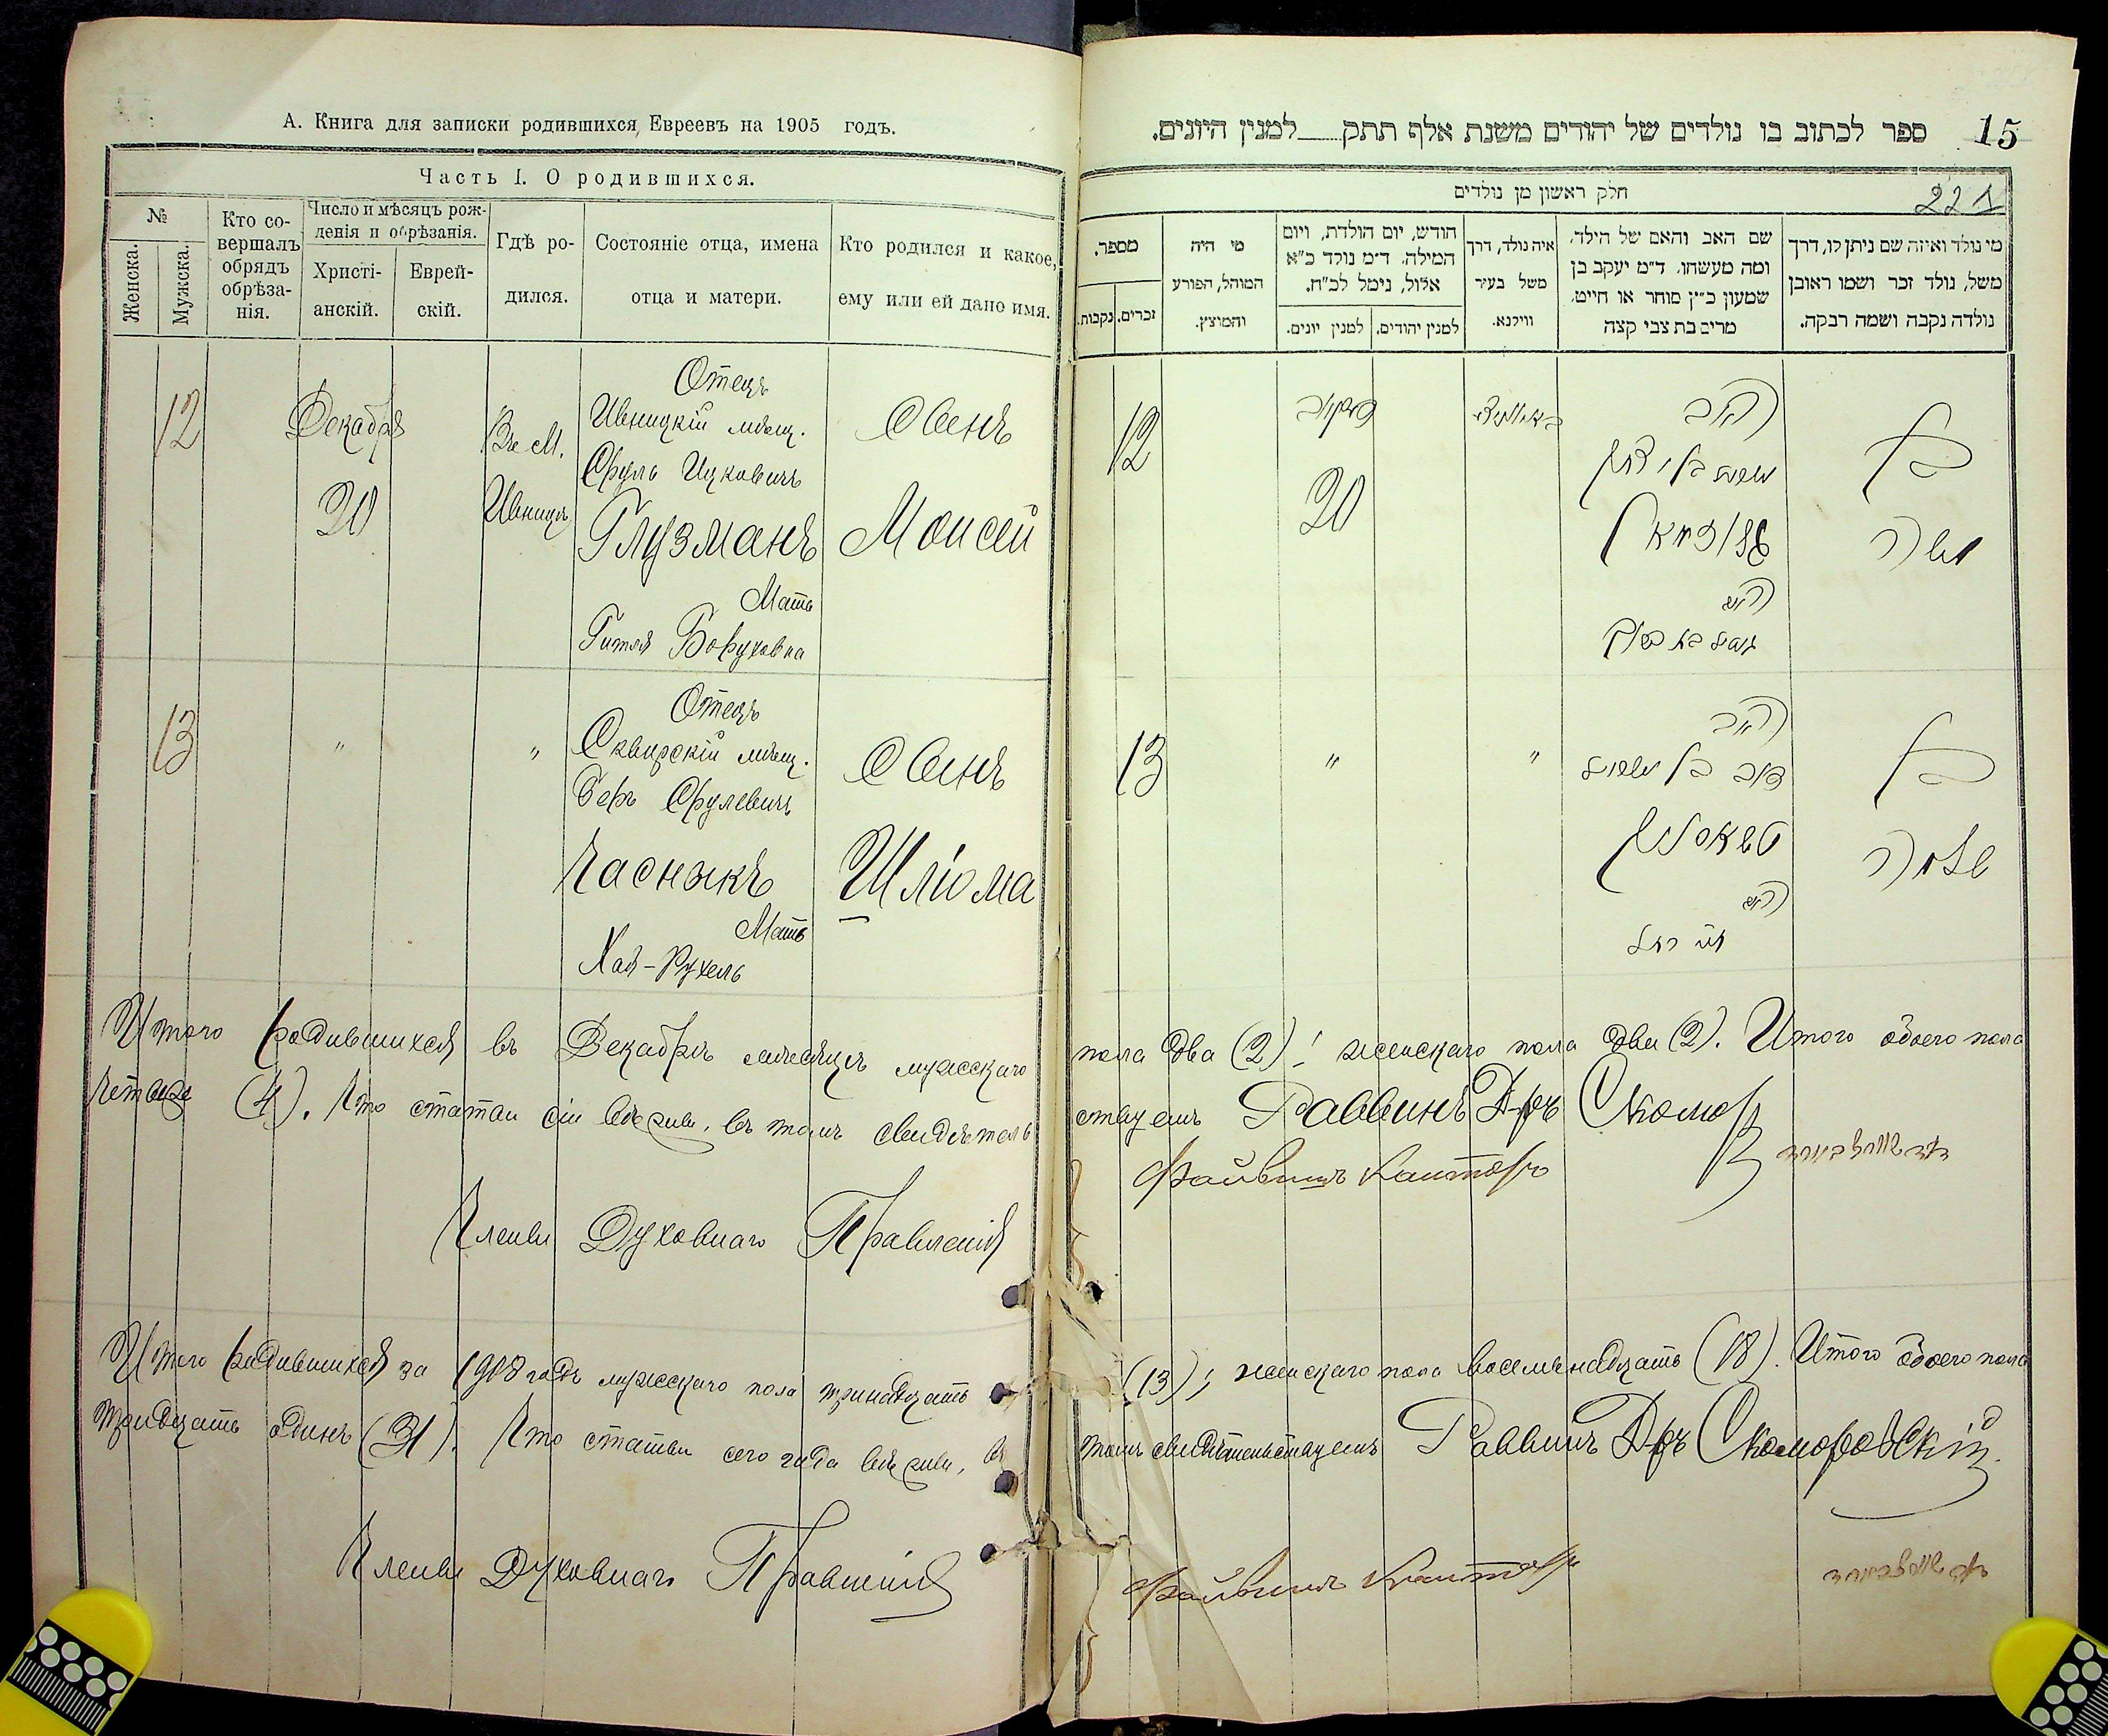 А. Книга для записки родившихся Евреевъ на 1905 годъ.
Часть I. О родившихся.
№
Женска.
Мужска.
Кто со-
вершалъ
обрядъ
обрѣза-
нія.
Число и мѣсяцъ рож-
денія и обрѣзанія.
Христі-
анскій.
Еврей-
скій.
Гдѣ ро-
дился.
Состояніе отца, имена
отца и матери.
Кто родился и какое,
ему или ей дано имя.
12
Декабря
20
Въ М.
Ивницѣ
Отецъ
Ивницкій мѣщ.
Сруль Ицковичъ
Глузманъ
Мать
Гитля Боруховна
Сынъ
Моисей
13
"
"
Отецъ
Сквирскій мѣщ.
Беръ Срулевичъ
Часныкъ
Мать
Хая-Рухель
Сынъ
Шліома
Итого родившихся въ Декабрѣ мѣсяцѣ мужскаго
четыре (4). Что статьи сіи вѣрны, въ томъ свидѣтель
Члены Духовнаго Правленія
Итого родившихся за 1908 годъ мужскаго пола тринадцать
тридцать одинъ (31). Что статьи сего года вѣрны, въ
Члены Духовнаго Правленія
ספר לכתוב בו נולדים של יהודים משנת אלף תתק למנין היונים.
15
חלק ראשון מן נולדים
221
מספר.
זכרים.
נקבות.
מי היה
המוהל, הפורע
והמוצץ.
חודש, יום הולדת, ויום
המילה. ד״מ נולד כ״א
אלול, נימל לכ״ח.
למנין יונים.
למנין יהודים.
איה נולד, דרך
משל בעיר
ווילנא.
שם האב והאם של הילד,
ומה מעשהו. ד״מ יעקב בן
שמעון כ״ץ סוחר או חייט,
מרים בת צבי קצה
מי נולד ואיזה שם ניתן לו, דרך
משל, נולד זכר ושמו ראובן
נולדה נקבה ושמה רבקה.
12
20
האב
גלוזמאן
האם
בן
משה
13
"
"
האב
דוב בן ישראל
האם
חי׳ רחל
בן
שלמה
пола два (2); женскаго пола два (2). Итого обоего пола
ствуемъ Раввинъ Д-ръ Скомор
Файвишъ Канторъ
(13); женскаго пола восемьнадцать (18). Итого обоего пола
томъ свидѣтельствуемъ Раввинъ Д-ръ Скоморовскій
Файвишъ Канторъ